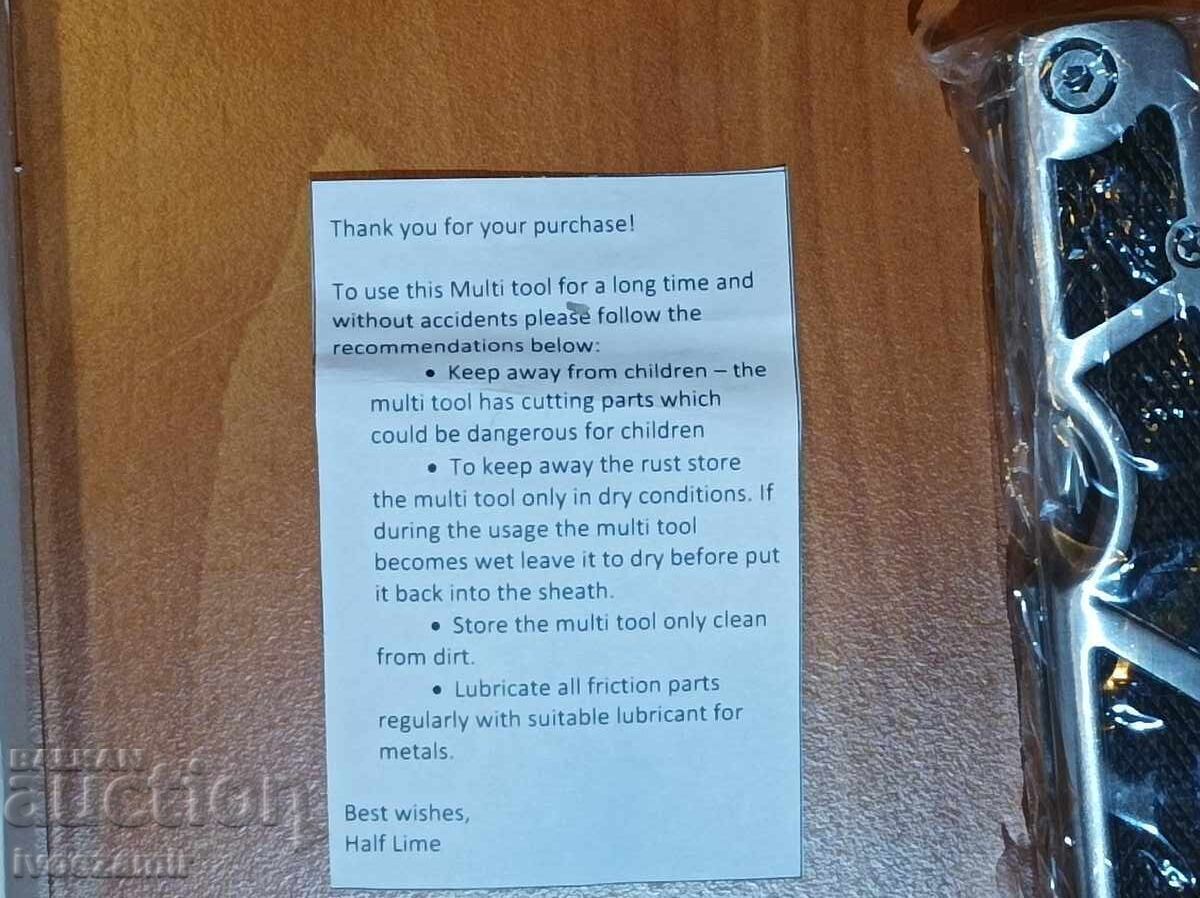 Thank you for your purchase!
To use this Multi tool for a long time and
without accidents please follow the
recommendations below:
• Keep away from children – the
multi tool has cutting parts which
could be dangerous for children
• To keep away the rust store
the multi tool only in dry conditions. If
during the usage the multi tool
becomes wet leave it to dry before put
it back into the sheath.
• Store the multi tool only clean
from dirt.
• Lubricate all friction parts
regularly with suitable lubricant for
metals.
Best wishes,
Half Lime
BALKAN
auction
ivoszamir